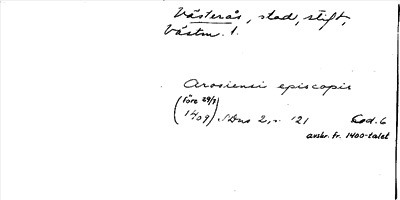 Västerås, stad, stift,
Västm. l.
Arosiensi episcopis
(före 29/9)
1409). SDns 2, s. 121 Cod. 6
avskr. fr. 1400-talet